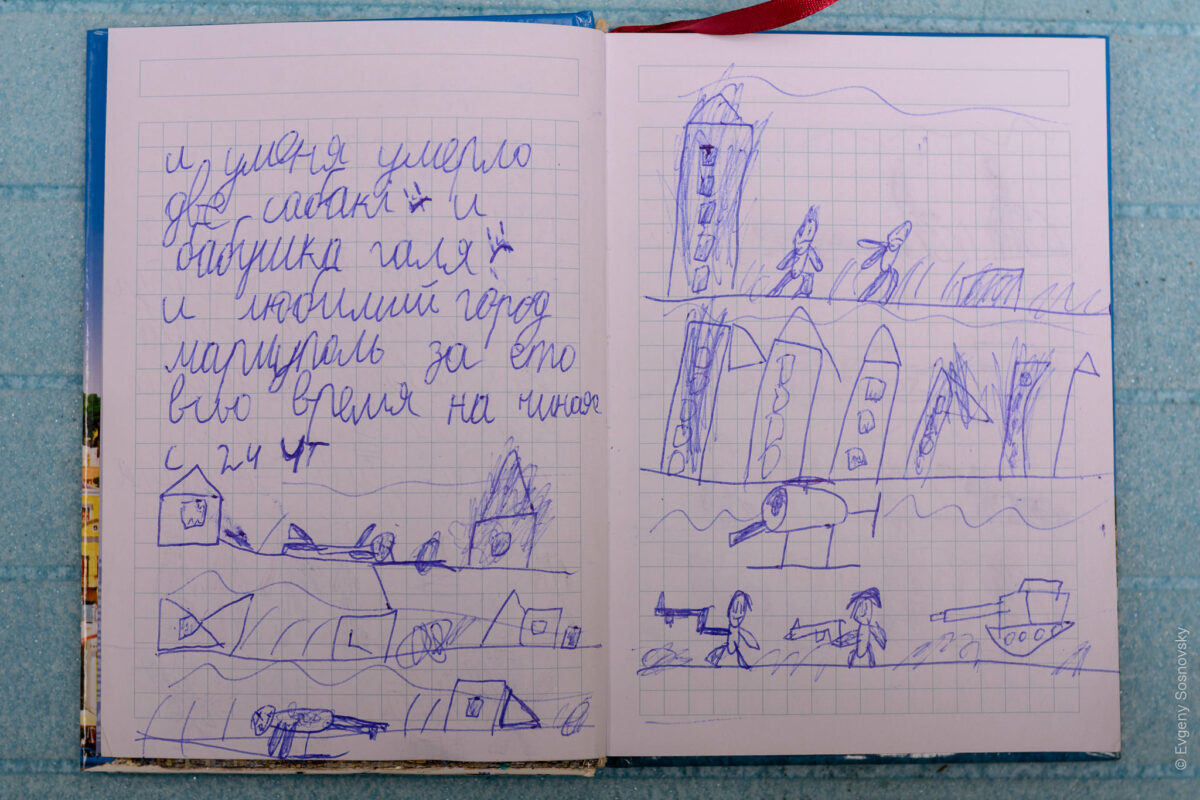 и уменя умерло
две сабакі и
бабушка галя
и любимий город
мариуполь за єто
всю время на чиная
с 24 чт
© Evgeny Sosnovsky